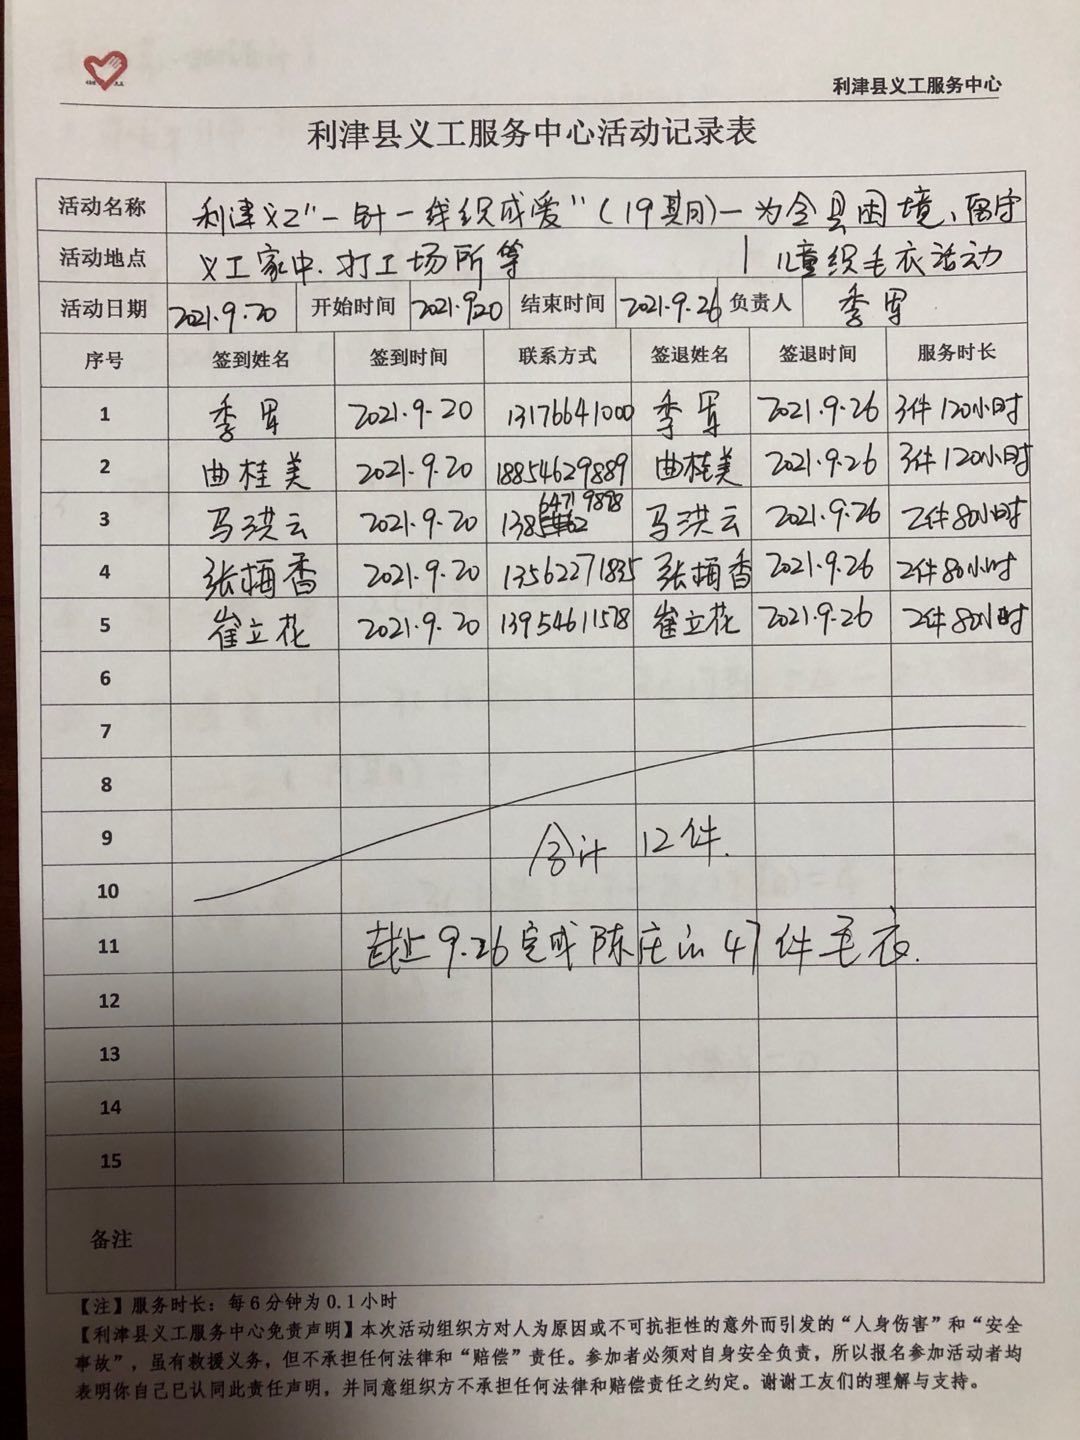 利津县义工服务中心
利津县义工服务中心活动记录表
活动名称 利津义工"一针一线织成爱"(19期)—为全县困境、留守
活动地点 义工家中、打工场所等 儿童织毛衣活动
活动日期 2021.9.20 开始时间 2021.9.20 结束时间 2021.9.26 负责人 季军
序号 签到姓名 签到时间 联系方式 签退姓名 签退时间 服务时长
1 季军 2021.9.20 13176641000 季军 2021.9.26 3件120小时
2 曲桂美 2021.9.20 18854629889 曲桂美 2021.9.26 3件120小时
3 马洪云 2021.9.20 马洪云 2021.9.26 2件80小时
4 张梅香 2021.9.20 13562271835 张梅香 2021.9.26 2件80小时
5 崔立花 2021.9.20 13954611578 崔立花 2021.9.26 2件80小时
6
7
8
9 合计 12件.
10
11 截止9.26完成陈庄的47件毛衣.
12
13
14
15
备注
【注】服务时长：每6分钟为0.1小时
【利津县义工服务中心免责声明】本次活动组织方对人为原因或不可抗拒性的意外而引发的“人身伤害”和“安全
事故”，虽有救援义务，但不承担任何法律和“赔偿”责任。参加者必须对自身安全负责，所以报名参加活动者均
表明你自己已认同此责任声明，并同意组织方不承担任何法律和赔偿责任之约定。谢谢工友们的理解与支持。